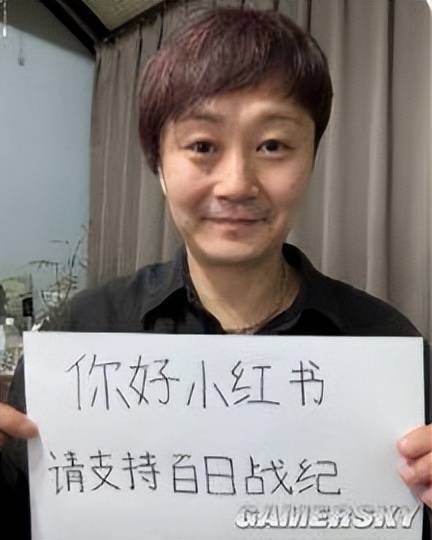 你好小红书
请支持百日战纪
GAMERSKY